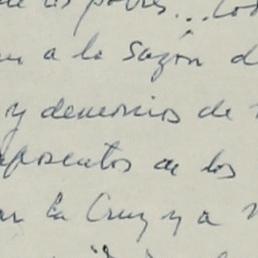 los pobres...
a la sazón d
y demonios de
aposentos de los
la Cruz y a